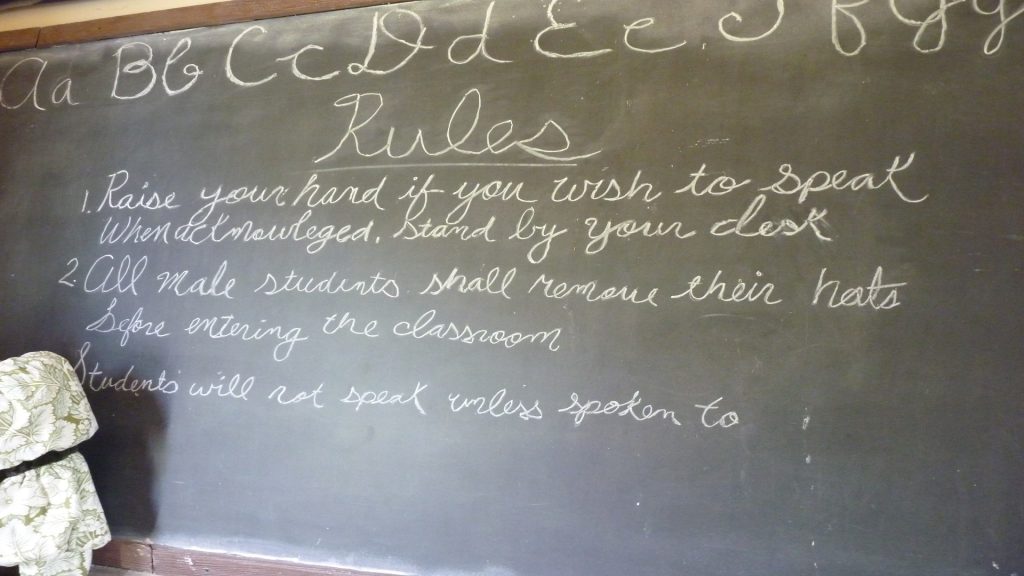 Aa Bb Cc Dd Ee Ff Gg
Rules
1. Raise your hand if you wish to speak
When acknowleged, Stand by your desk
2. All male students shall remove their hats
before entering the classroom
Students will not speak unless spoken to